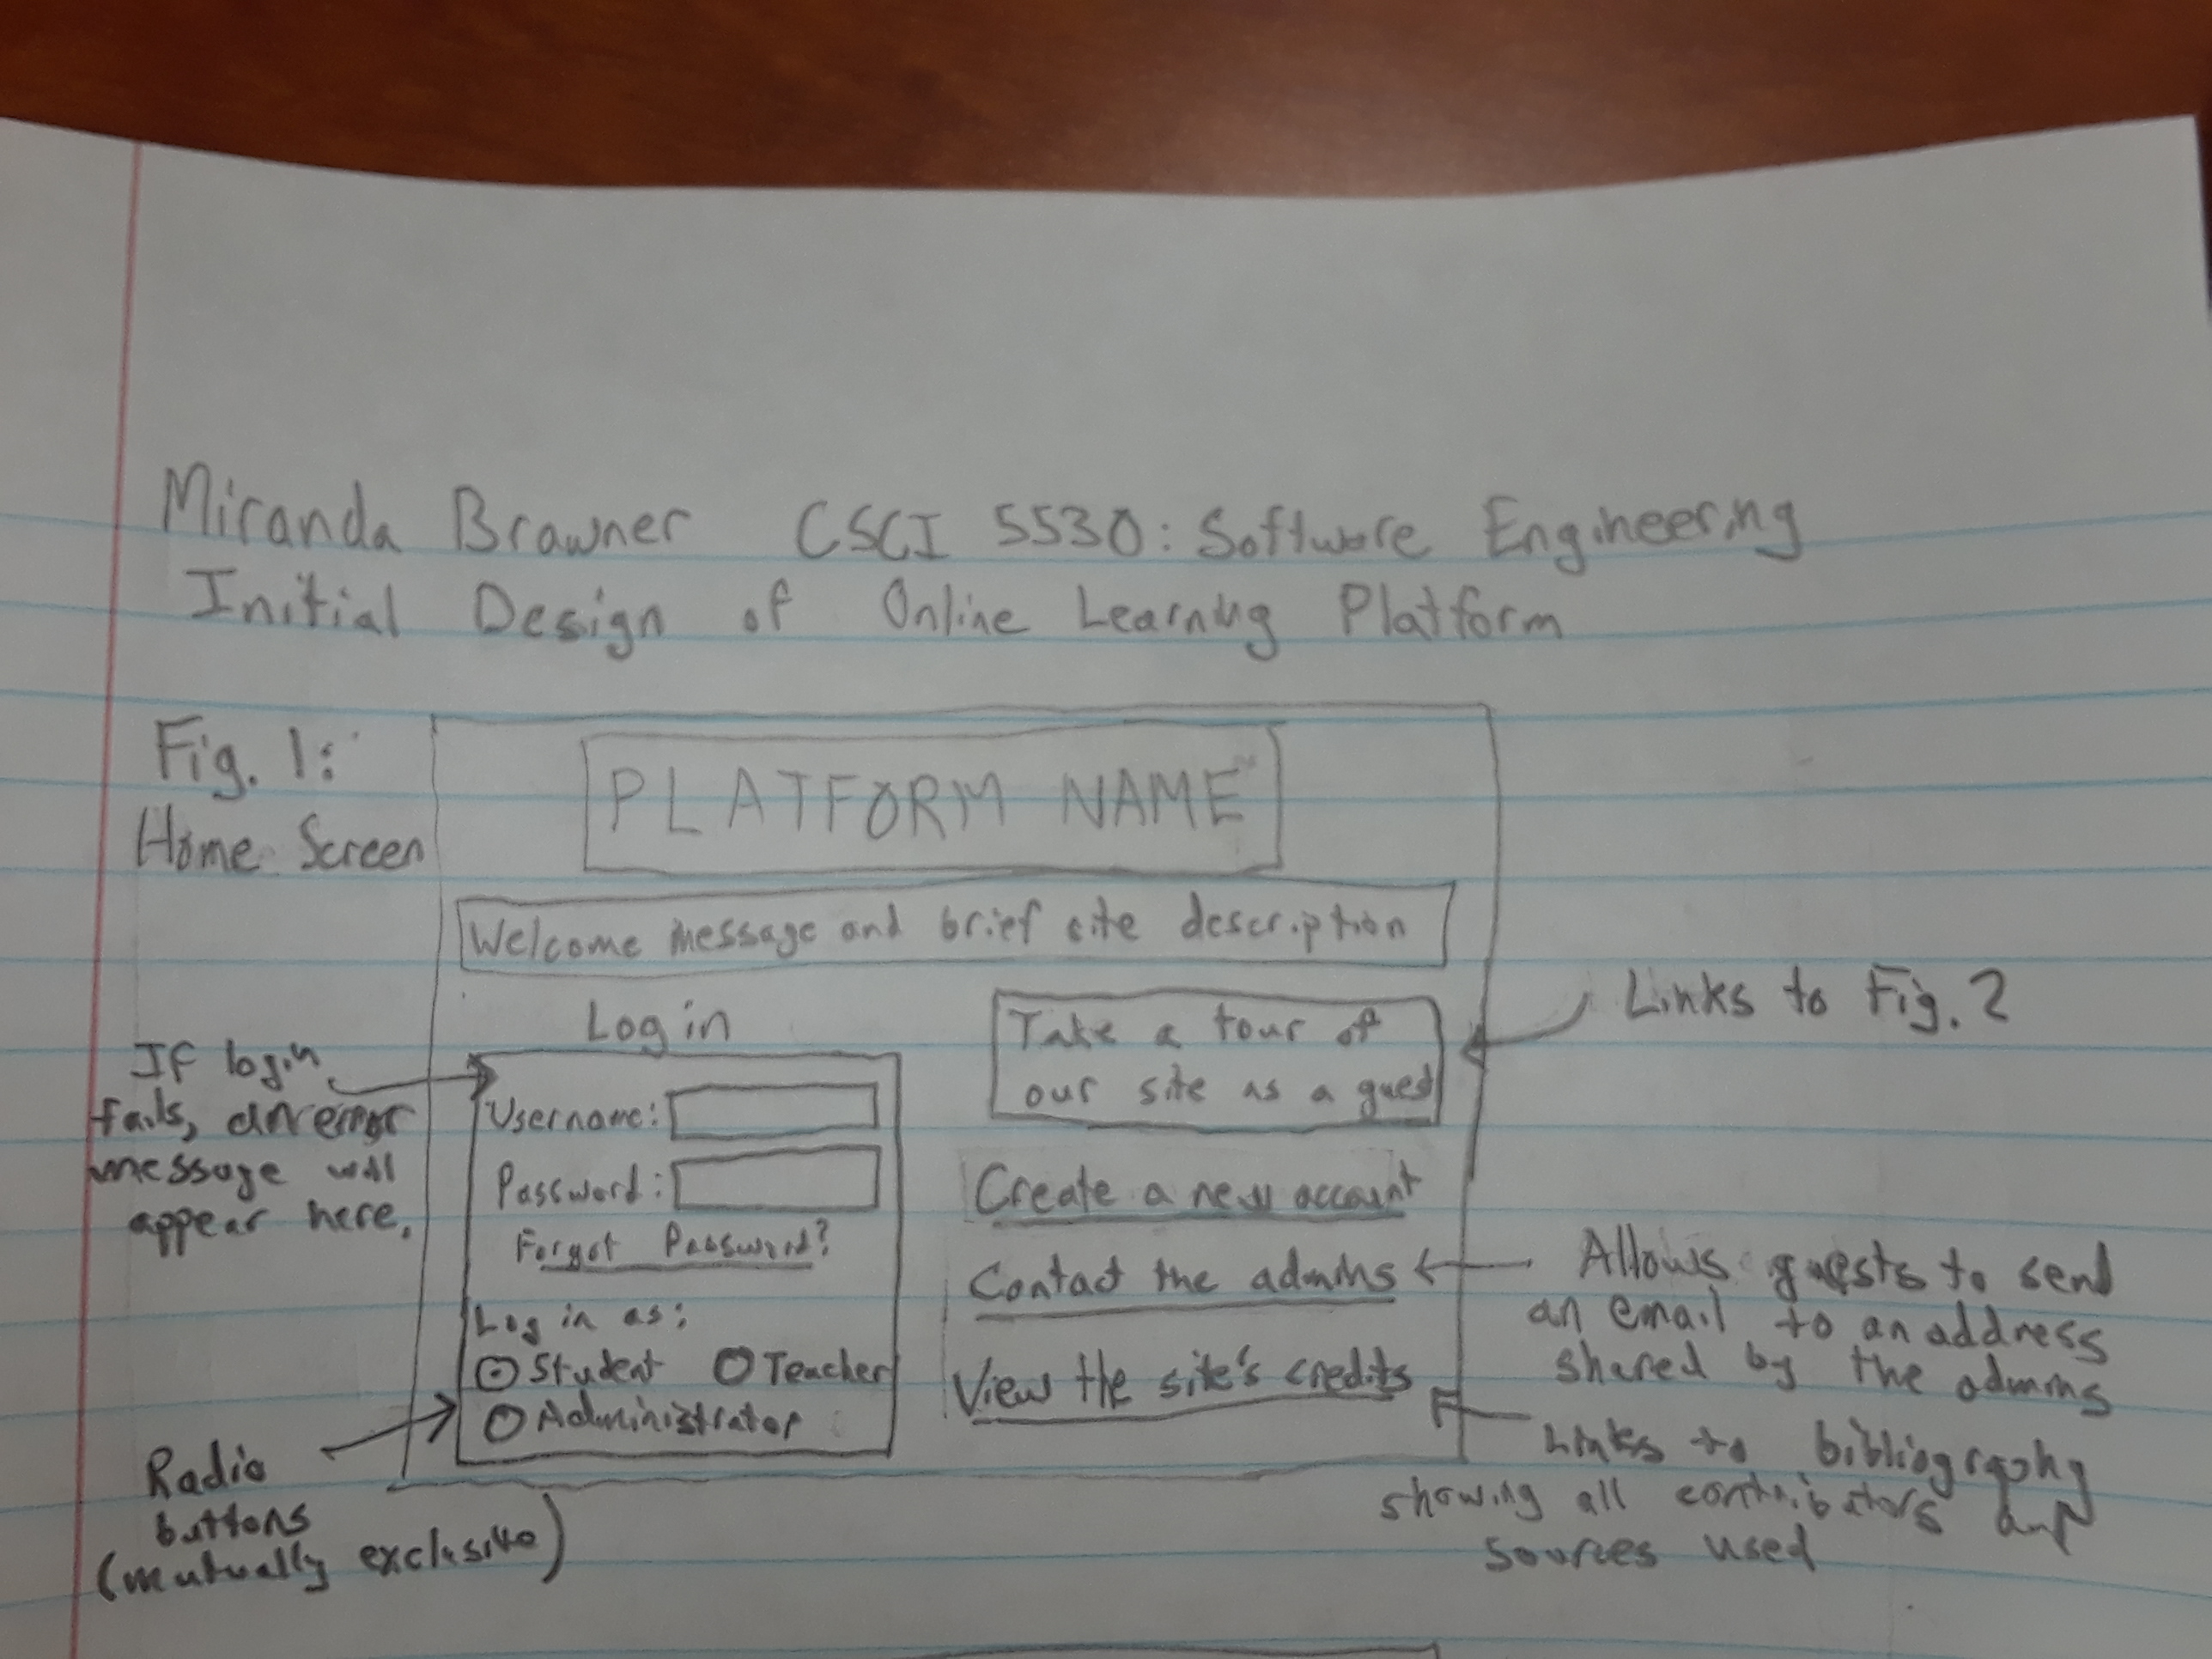 Miranda Brawner CSCI 5530: Software Engineering
Initial Design of Online Learning Platform
Fig. 1:
Home Screen
PLATFORM NAME
Welcome message and brief site description
Log in
If login
fails, an error
message will
appear here.
Username:
Password:
Forgot Password?
Log in as:
Student Teacher
Administrator
Radio
buttons
(mutually exclusive)
Take a tour of
our site as a guest
Links to Fig. 2
Create a new account
Contact the admins
Allows guests to send
an email to an address
shared by the admins
View the site's credits
Links to bibliography
showing all contributors and
sources used